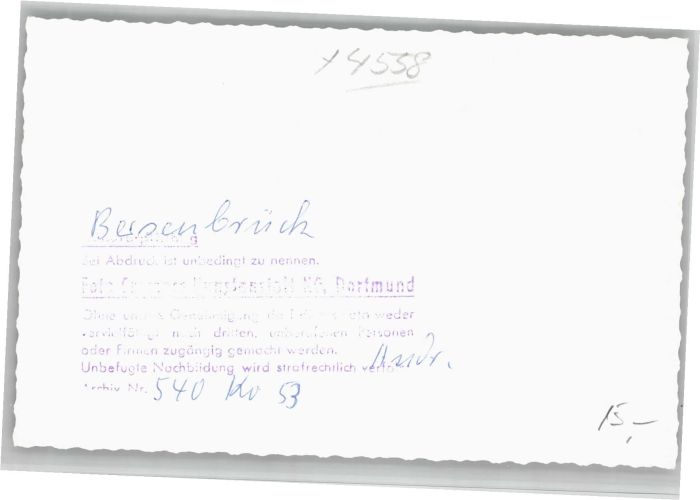 x 4558
Bersenbrück
Bei Abdruck ist unbedingt zu nennen.
Foto Cramers Kunstanstalt KG, Dortmund
Ohne unsere Genehmigung die weder
vervielfältigt noch dritten, unberufenen Personen
oder Firmen zugängig gemacht werden.
Unbefugte Nachbildung wird strafrechtlich
Archiv Nr. 540 Kv 53
15,–